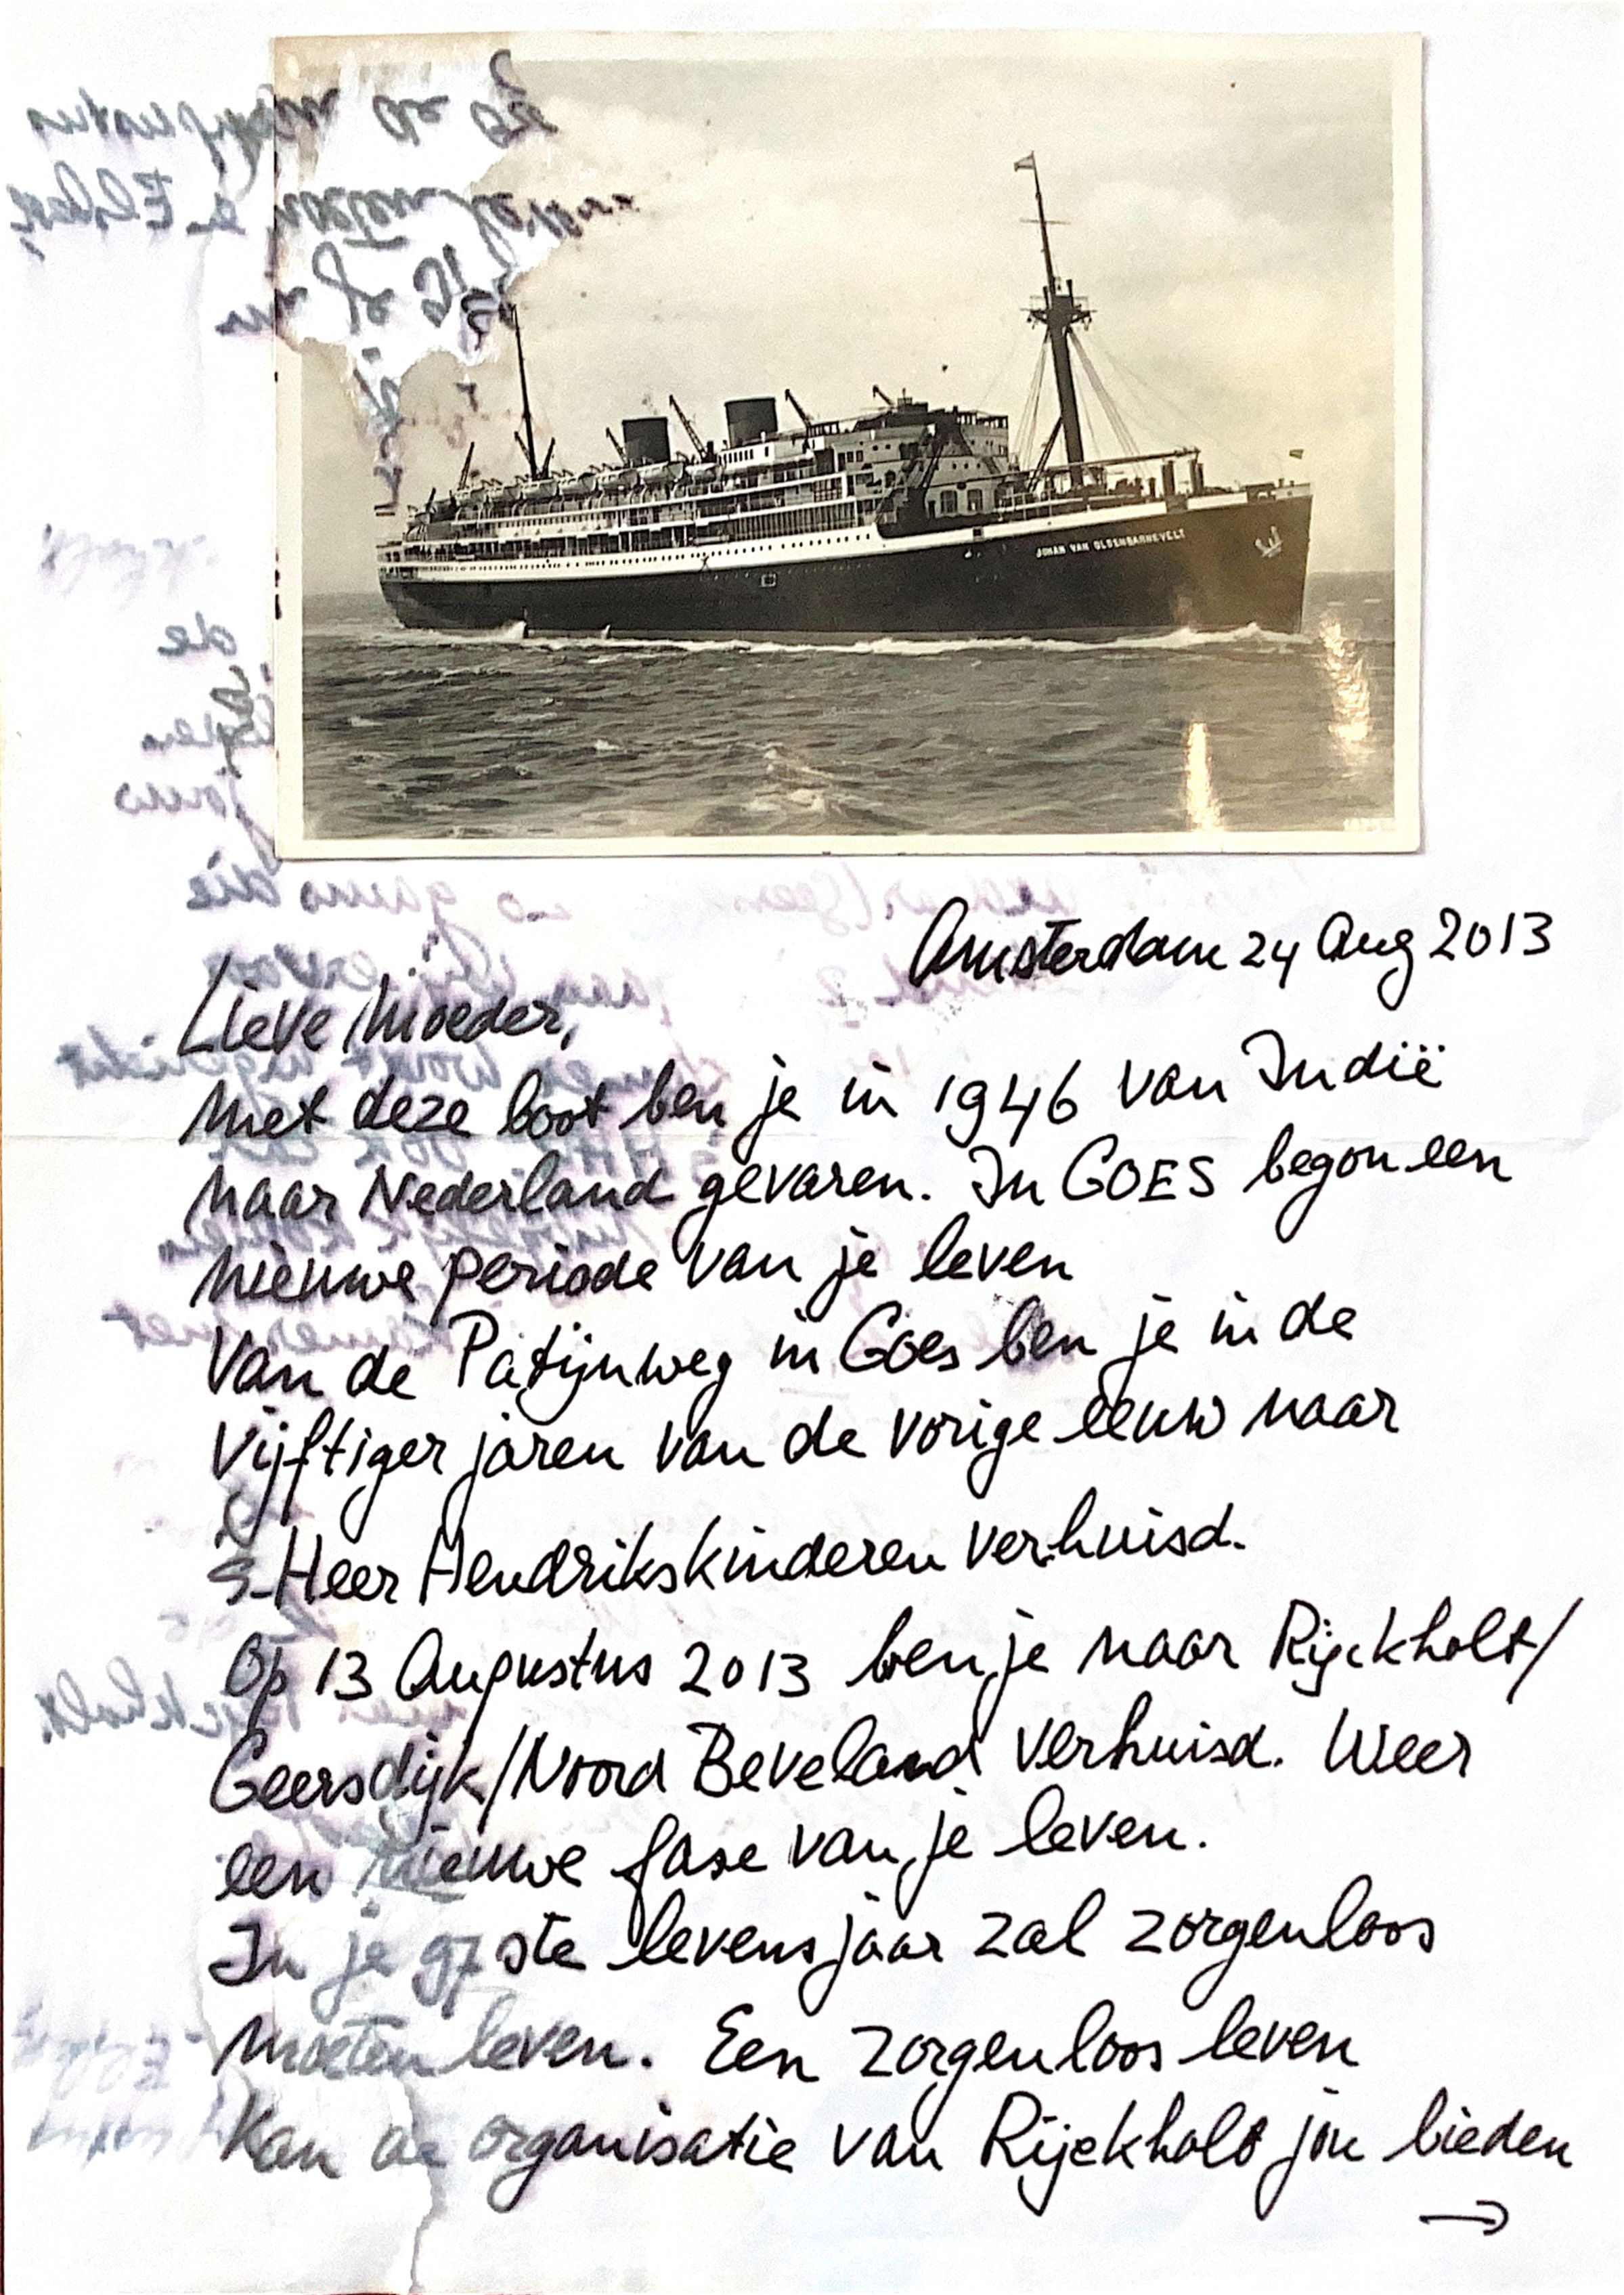 JOHAN VAN OLDENBARNEVELT
Amsterdam 24 Aug 2013
Lieve Moeder,
Met deze boot ben je in 1946 van Indië
naar Nederland gevaren. In GOES begon een
nieuwe periode van je leven
Van de Patijnweg in Goes ben je in de
vijftiger jaren van de vorige eeuw naar
S-Heer Hendrikskinderen verhuisd.
Op 13 Augustus 2013 ben je naar Rijckholt/
Geersdijk/Noord Beveland verhuisd. Weer
een nieuwe fase van je leven.
In je 97ste levensjaar zal zorgenloos
moeten leven. Een zorgenloos leven
Kan de organisatie van Rijckholt jou bieden
→